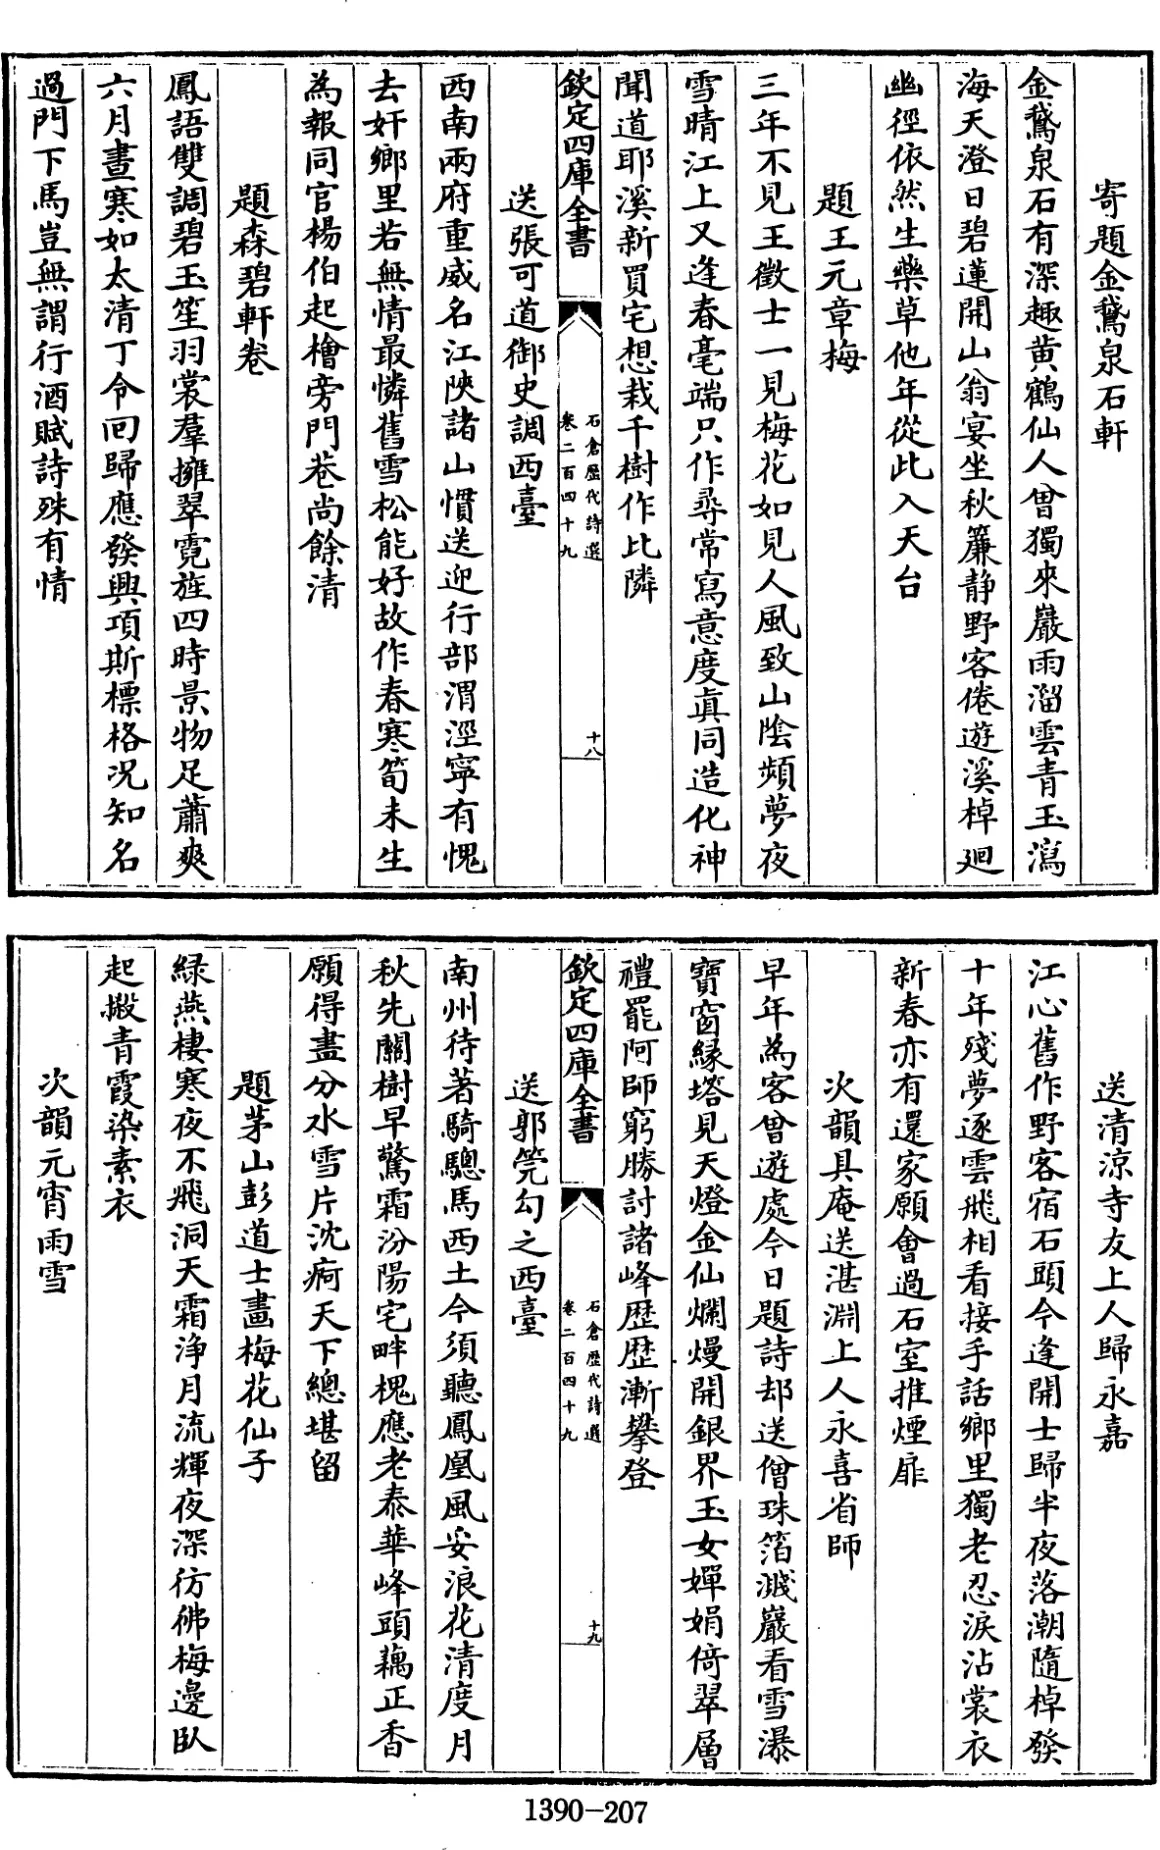 寄題金鵞泉石軒
金鵞泉石有深趣黄鶴仙人曾獨來巖雨溜雲青玉瀉
海天澄日碧蓮開山翁宴坐秋簾静野客倦遊溪棹廻
幽徑依然生藥草他年從此入天台
題王元章梅
三年不見王徵士一見梅花如見人風致山隂頻夢夜
雪晴江上又逢春毫端只作尋常寫意度真同造化神
聞道耶溪新買宅想栽千樹作比隣
欽定四庫全書
石倉歴代詩選
卷二百四十九
十八
送張可道御史調西臺
西南兩府重威名江陜諸山慣送迎行部渭涇寧有愧
去奸鄉里若無情最憐舊雪松能好故作春寒筍未生
為報同官楊伯起檜旁門巷尚餘清
題森碧軒卷
鳳語雙調碧玉笙羽裳羣擁翠霓旌四時景物足蕭爽
六月晝寒如太清丁令回歸應發興項斯標格况知名
過門下馬豈無謂行酒賦詩殊有情
送清涼寺友上人歸永嘉
江心舊作野客宿石頭今逢開士歸半夜落潮隨棹發
十年殘夢逐雲飛相看接手話鄉里獨老忍淚沾裳衣
新春亦有還家願會過石室推煙扉
次韻具庵送湛淵上人永喜省師
早年為客曾遊處今日題詩却送僧珠箔濺巖看雪瀑
寶窗緣塔見天燈金仙爛熳開銀界玉女嬋娟倚翠層
禮罷阿師窮勝討諸峰歴歴漸攀登
欽定四庫全書
石倉歴代詩選
卷二百四十九
十九
送郭筦勾之西臺
南州待著騎驄馬西土今須聽鳳凰風妥浪花清度月
秋先關樹早驚霜汾陽宅畔槐應老泰華峰頭藕正香
願得盡分水雪片沈痾天下總堪留
題茅山彭道士畫梅花仙子
緑燕棲寒夜不飛洞天霜浄月流輝夜深彷彿梅邊臥
起搬青霞染素衣
次韻元宵雨雪
1390-207